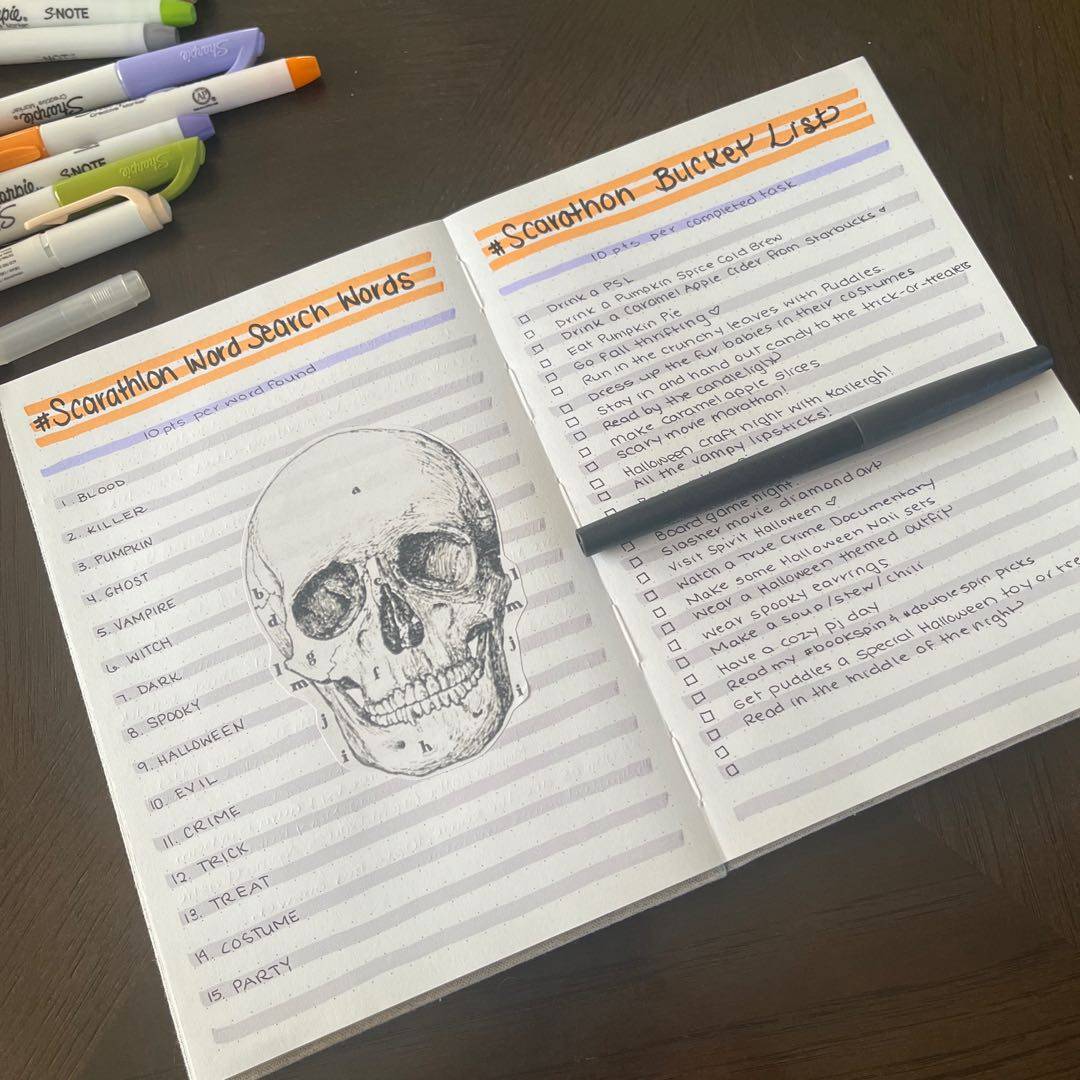 Sharpie S-NOTE
Sharpie
Creative Marker
Sharpie
AP
S-NOTE
Sharpie
#Scarathlon Word Search Words
10 pts per word found
1. BLOOD
2. KILLER
3. PUMPKIN
4. GHOST
5. VAMPIRE
6 WITCH
7. DARK
8. SPOOKY
9. HALLOWEEN
10. EVIL
11. CRIME
12. TRICK
13. TREAT
14. COSTUME
15. PARTY
a
b
c
d
e
g
f
l
m
j
i
h
l
m
j
i
#Scarathon Bucket List
10 pts per completed task
Drink a PSL
Drink a Pumpkin Spice Cold Brew
Drink a Caramel Apple Cider from Starbucks
Eat Pumpkin Pie
Go Fall thrifting ♡
Run in the crunchy leaves with Puddles.
Dress up the fur babies in their costumes
Stay in and hand out candy to the trick-or-treaters
Read by the candlelight
make caramel apple slices
scary movie marathon!
Halloween craft night with Kaileigh!
All the vampy lipsticks!
Board game night.
Slasher movie diamond art
Visit Spirit Halloween ♡
Watch a True Crime Documentary
Make some Halloween Nail sets
Wear a Halloween themed outfit
Wear spooky earrings
Make a soup/stew/chili
Have a cozy PJ day
Read my #bookspin & #doublespin picks
Get puddles a special Halloween toy or tre
Read in the middle of the night